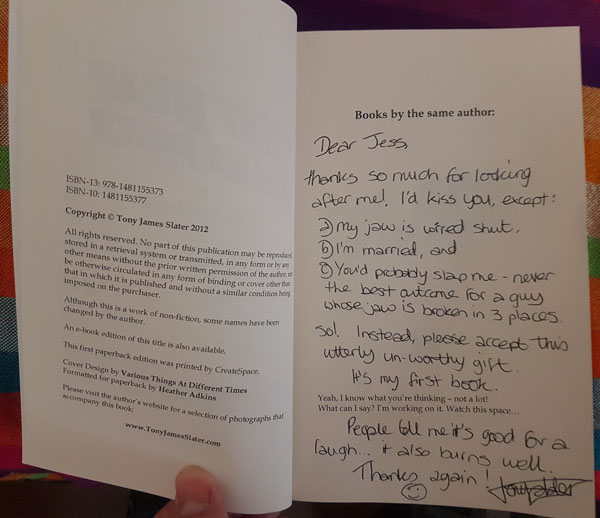 ISBN-13: 978-1481155373
ISBN-10: 1481155377
Copyright © Tony James Slater 2012
All rights reserved. No part of this publication may be reproduced,
stored in a retrieval system or transmitted, in any form or by any
other means without the prior written permission of the author, nor
be otherwise circulated in any form of binding or cover other than
that in which it is published and without a similar condition being
imposed on the purchaser.
Although this is a work of non-fiction, some names have been
changed by the author.
An e-book edition of this title is also available.
This first paperback edition was printed by CreateSpace.
Cover Design by Various Things At Different Times
Formatted for paperback by Heather Adkins
Please visit the author's website for a selection of photographs that
accompany this book:
www.TonyJamesSlater.com
Books by the same author:
Dear Jess,
thanks so much for looking
after me! I'd kiss you, except:
a) my jaw is wired shut,
b) I'm married, and
c) You'd probably slap me - never
the best outcome for a guy
whose jaw is broken in 3 places.
So! Instead, please accept this
utterly un-worthy gift.
It's my first book.
Yeah, I know what you're thinking – not a lot!
What can I say? I'm working on it. Watch this space…
People tell me it's good for a
laugh... it also burns well.
Thanks again!